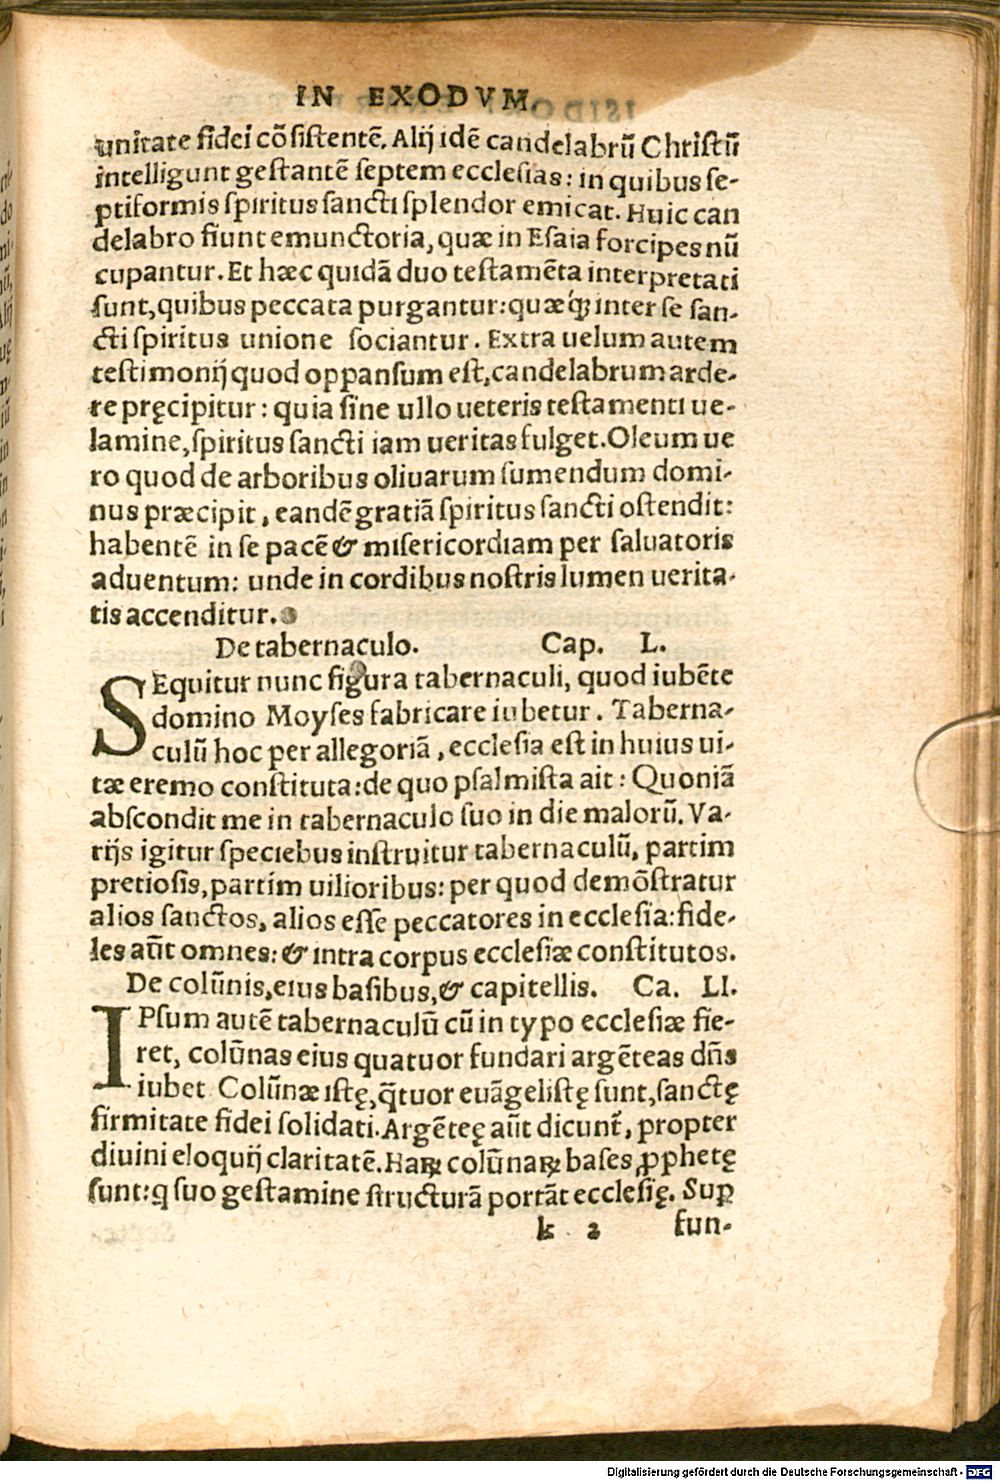 IN EXODVM.
unitate fidei cōſiſtentē. Alij idē candelabrū Chriſtū
intelligunt geſtantē ſeptem eccleſias: in quibus ſe-
ptiformis ſpiritus ſancti ſplendor emicat. Huic can
delabro fiunt emunctoria, quæ in Eſaia forcipes nū
cupantur. Et hæc quidā duo teſtamēta interpretati
ſunt, quibus peccata purgantur: quæq́ꝫ inter ſe ſan-
cti ſpiritus unione ſociantur. Extra uelum autem
teſtimonij quod oppanſum eſt, candelabrum arde-
re pręcipitur: quia ſine ullo ueteris teſtamenti ue-
lamine, ſpiritus ſancti iam ueritas fulget. Oleum ue
ro quod de arboribus oliuarum ſumendum domi-
nus præcipit, eandē gratiā ſpiritus ſancti oſtendit:
habentē in ſe pacē & miſericordiam per ſaluatoris
aduentum: unde in cordibus noſtris lumen uerita-
tis accenditur.
De tabernaculo. Cap. L.
SEquitur nunc figura tabernaculi, quod iubēte
domino Moyſes fabricare iubetur. Taberna-
culū hoc per allegoriā, eccleſia eſt in huius ui-
tæ eremo conſtituta: de quo pſalmiſta ait: Quoniā
abſcondit me in tabernaculo ſuo in die malorū. Va-
rijs igitur ſpeciebus inſtruitur tabernaculū, partim
pretioſis, partim uilioribus: per quod demōſtratur
alios ſanctos, alios eſſe peccatores in eccleſia: fide-
les aūt omnes: & intra corpus eccleſiæ conſtitutos.
De colūnis, eius baſibus, & capitellis. Ca. LI.
IPſum autē tabernaculū cū in typo eccleſiæ fie-
ret, colūnas eius quatuor fundari argēteas dn̄s
iubet Colūnæ iſtę, q̄tuor euāgeliſtę ſunt, ſanctę
firmitate fidei ſolidati. Argētęę aūt dicunt̄, propter
diuini eloquij claritatē. Haꝝ colūnaꝝ baſes, ꝓphetę
ſunt: ꝗ ſuo geſtamine ſtructurā portāt eccleſię. Suꝑ
k 2 fun-
Digitalisierung gefördert durch die Deutsche Forschungsgemeinschaft - DFG